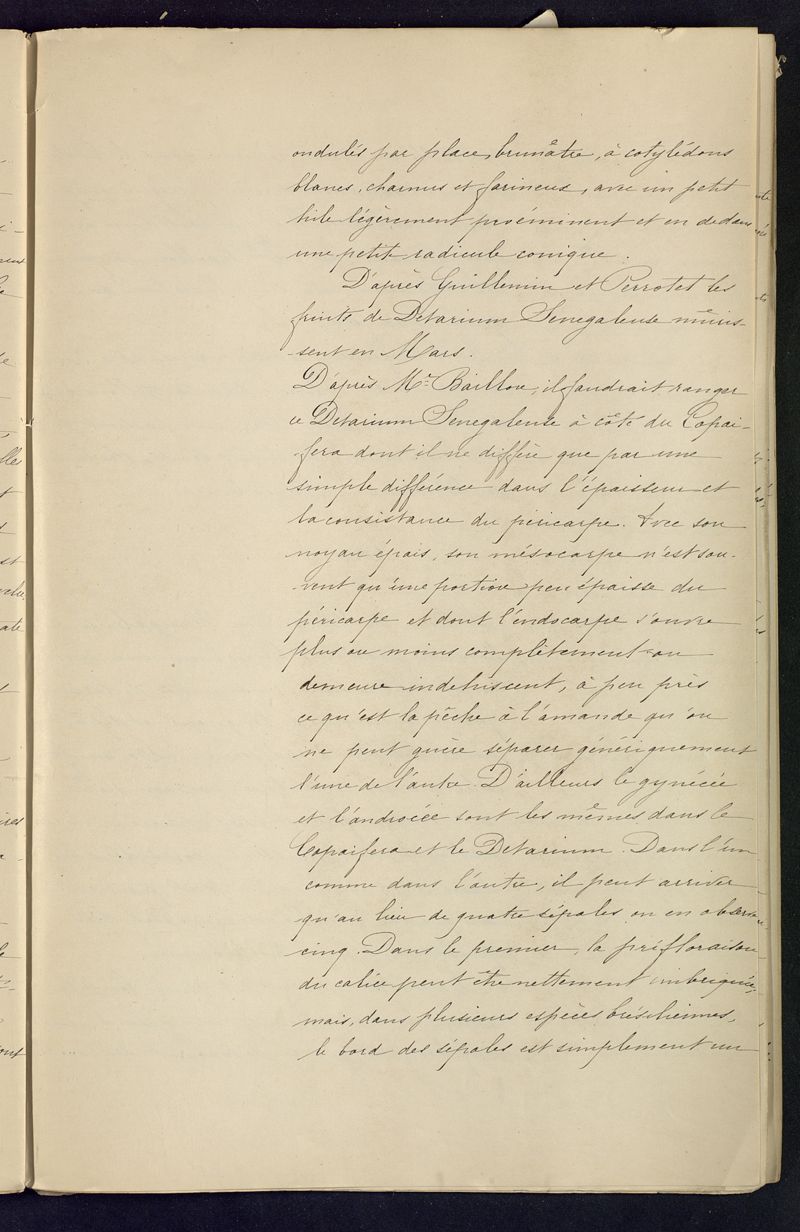 ondulés par place, brunâtre, à cotylédons
blancs, charnus et farineux, avec un petit
hile légèrement proéminent et en dedans
une petite radicule conique.
D'après Guillemin et Perrotet les
fruits de Detarium Senegalense mûris-
-sent en Mars.
D'après Mr Baillon, il faudrait ranger
ce Detarium Senegalense à côté du Copai-
-fera dont il ne diffère que par une
simple différence dans l'épaisseur et
la consistance du péricarpe. Avec son
noyau épais, son mésocarpe n'est sou-
-vent qu'une portion peu épaisse du
péricarpe et dont l'endocarpe s'ouvre
plus ou moins complètement ou
demeure indehiscent, à peu près
ce qu'est la pêche à l'amande qu'on
ne peut guère séparer génériquement
l'une de l'autre. D'ailleurs le gynécée
et l'androcée sont les mêmes dans le
Copaifera et le Detarium. Dans l'un
comme dans l'autre, il peut arriver
qu'au lieu de quatre sépales on en observe
cinq. Dans le premier, la préfloraison
du calice peut être nettement imbriquée,
mais, dans plusieurs espèces brésiliennes,
le bord des sépales est simplement un